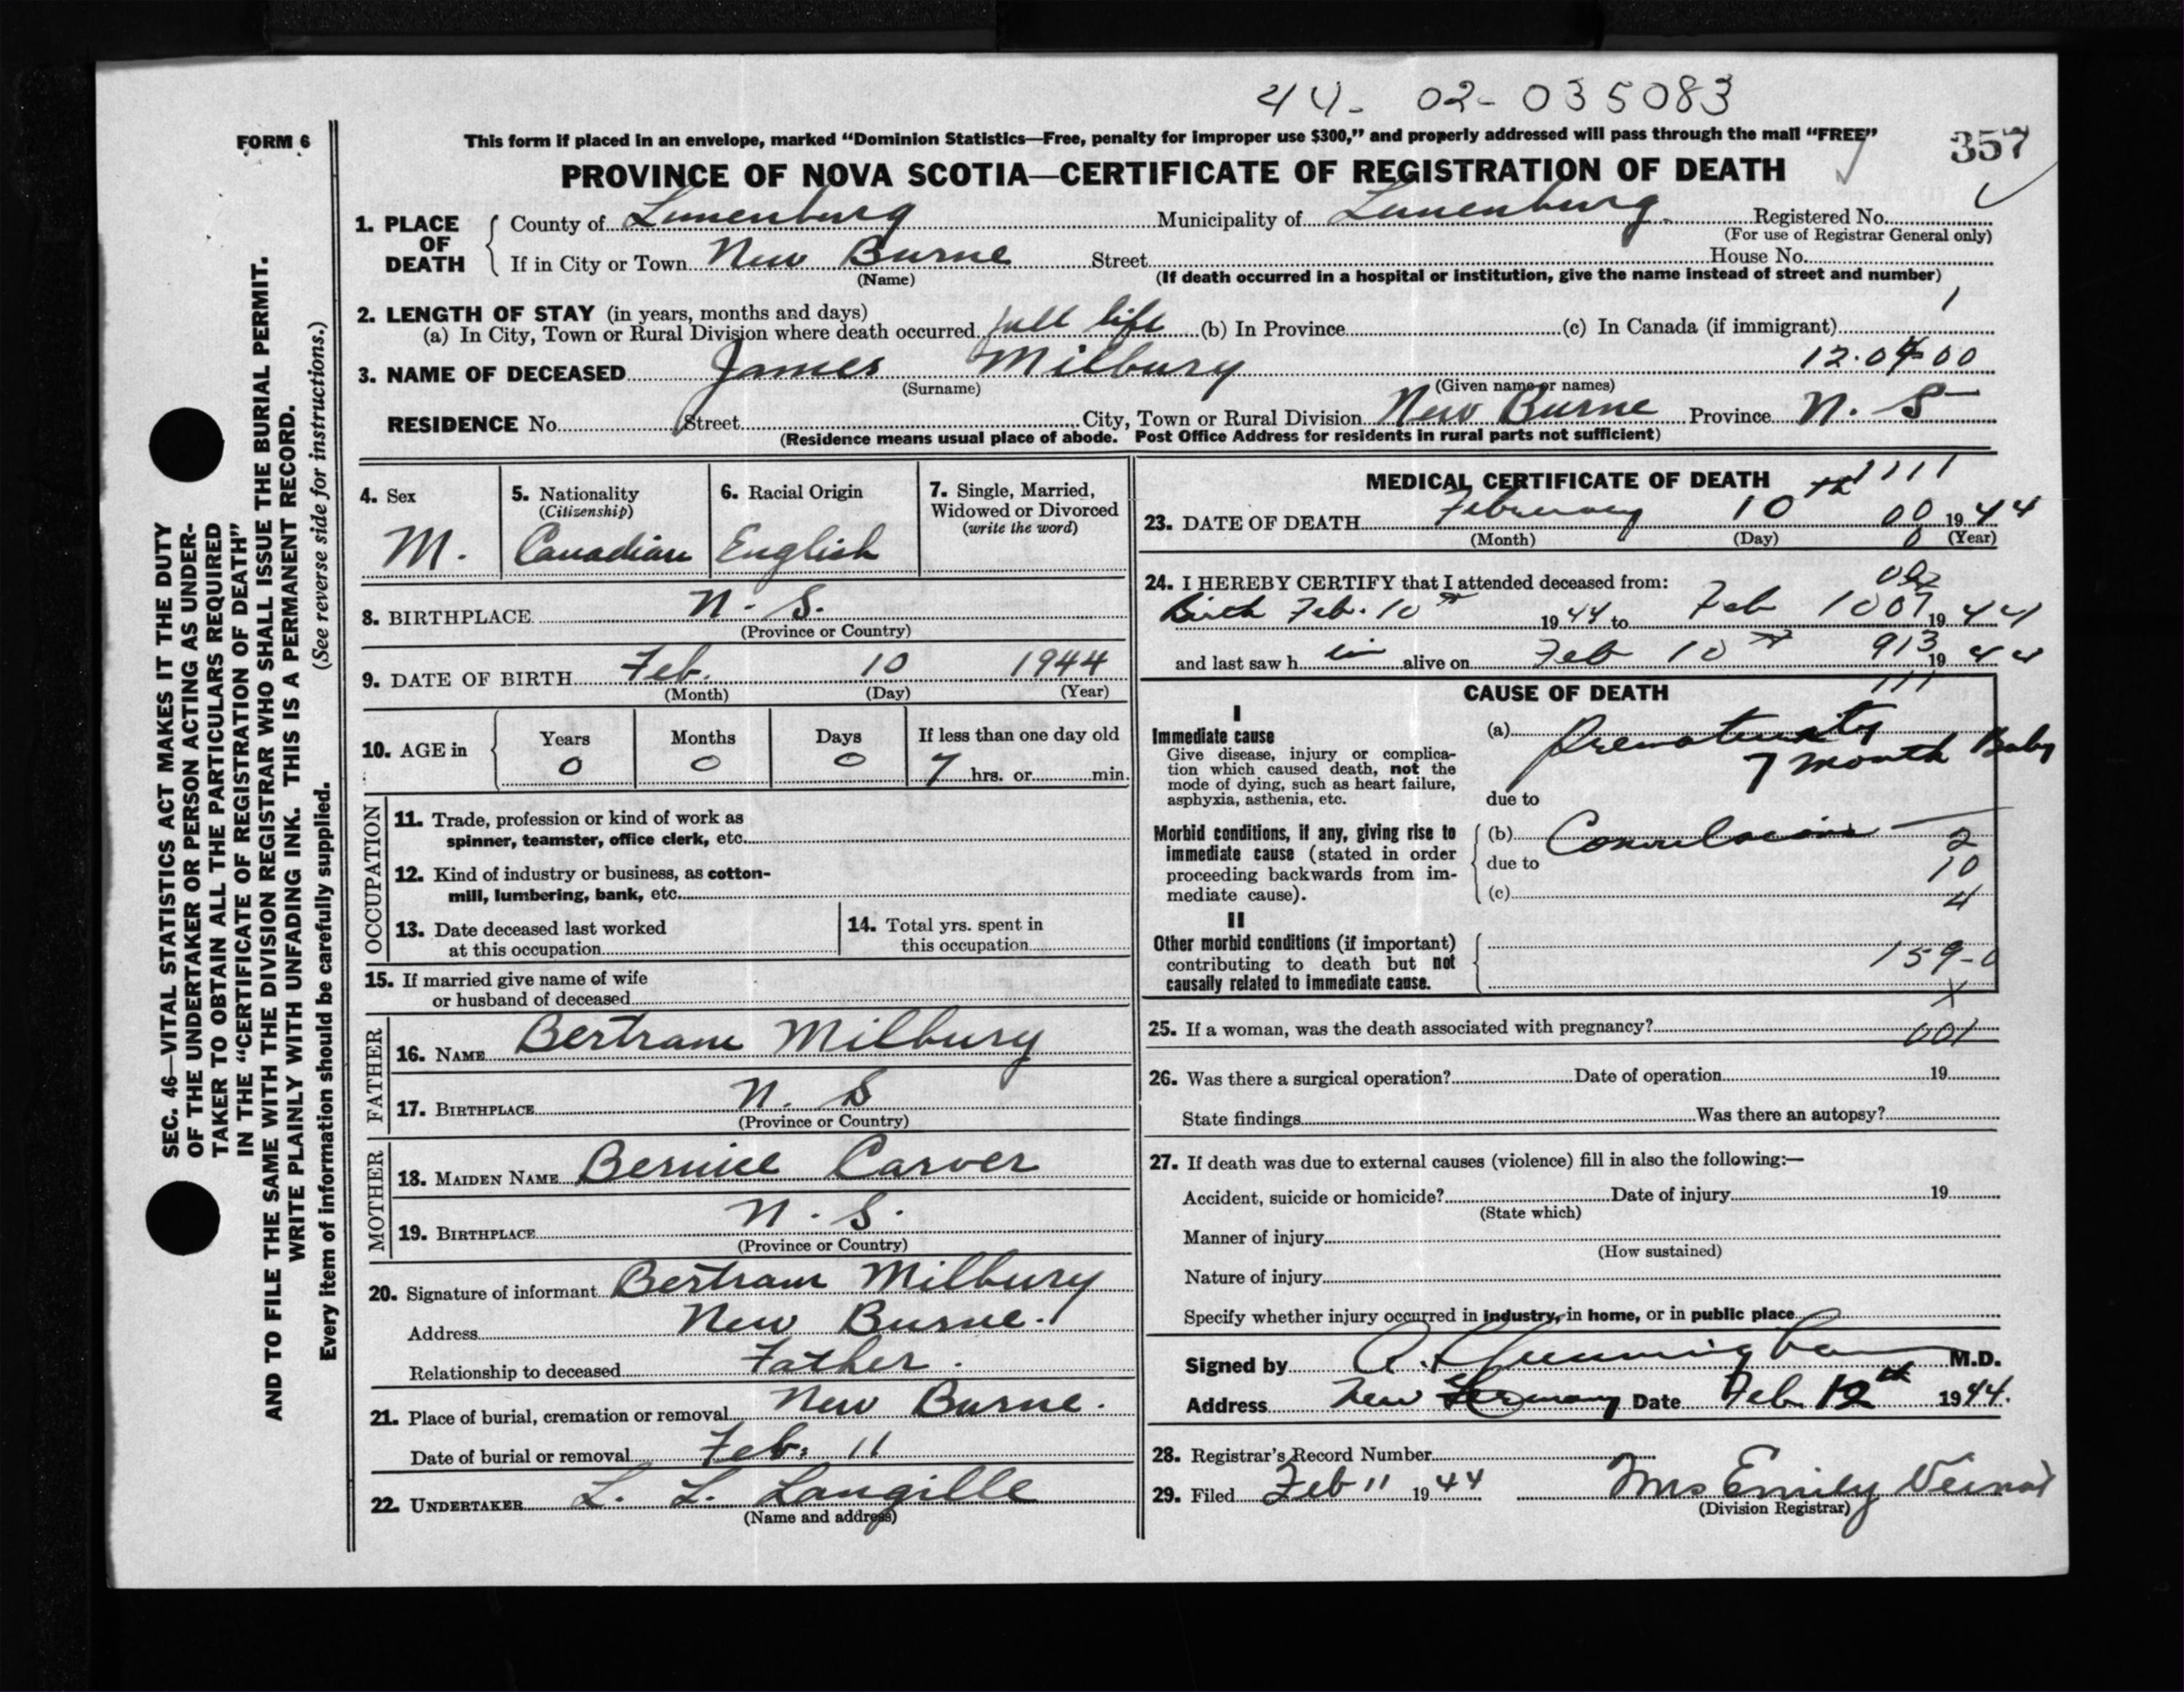 44- 02-035083
FORM 6
This form if placed in an envelope, marked “Dominion Statistics—Free, penalty for improper use $300,” and properly addressed will pass through the mail “FREE”
357
PROVINCE OF NOVA SCOTIA—CERTIFICATE OF REGISTRATION OF DEATH
1. PLACE OF DEATH
County of Lunenburg Municipality of Lunenburg. Registered No.
(For use of Registrar General only)
If in City or Town New Burne Street House No.
(Name) (If death occurred in a hospital or institution, give the name instead of street and number)
2. LENGTH OF STAY (in years, months and days)
(a) In City, Town or Rural Division where death occurred full life (b) In Province (c) In Canada (if immigrant)
3. NAME OF DECEASED James Milbury
(Surname) (Given name or names)
RESIDENCE No. Street City, Town or Rural Division New Burne Province N. S
(Residence means usual place of abode. Post Office Address for residents in rural parts not sufficient)
4. Sex
M.
5. Nationality
(Citizenship)
Canadian
6. Racial Origin
English
7. Single, Married,
Widowed or Divorced
(write the word)
8. BIRTHPLACE N. S.
(Province or Country)
9. DATE OF BIRTH Feb. 10 1944
(Month) (Day) (Year)
10. AGE in
Years Months Days If less than one day old
0 0 0 7 hrs. or min.
OCCUPATION
11. Trade, profession or kind of work as
spinner, teamster, office clerk, etc.
12. Kind of industry or business, as cotton-
mill, lumbering, bank, etc.
13. Date deceased last worked
at this occupation
14. Total yrs. spent in
this occupation
15. If married give name of wife
or husband of deceased
FATHER
16. NAME Bertram Milbury
17. BIRTHPLACE N. S
(Province or Country)
MOTHER
18. MAIDEN NAME Bernice Carver
19. BIRTHPLACE N. S.
(Province or Country)
20. Signature of informant Bertram Milbury
Address New Burne.
Relationship to deceased Father.
21. Place of burial, cremation or removal New Burne.
Date of burial or removal Feb. 11
22. UNDERTAKER L. L. Langille
(Name and address)
MEDICAL CERTIFICATE OF DEATH
23. DATE OF DEATH February 10th 1944
(Month) (Day) (Year)
24. I HEREBY CERTIFY that I attended deceased from:
Birth Feb. 10th 1944 to Feb 10 1944
and last saw h im alive on Feb 10th 1944
CAUSE OF DEATH
I
Immediate cause
Give disease, injury or complica-
tion which caused death, not the
mode of dying, such as heart failure,
asphyxia, asthenia, etc.
(a) Prematurity
7 month Baby
due to
Morbid conditions, if any, giving rise to
immediate cause (stated in order
proceeding backwards from im-
mediate cause).
(b) Convulsions
due to
(c)
2
10
4
II
Other morbid conditions (if important)
contributing to death but not
causally related to immediate cause.
159-0
25. If a woman, was the death associated with pregnancy?
001
26. Was there a surgical operation? Date of operation 19
State findings Was there an autopsy?
27. If death was due to external causes (violence) fill in also the following:—
Accident, suicide or homicide? Date of injury 19
(State which)
Manner of injury
(How sustained)
Nature of injury
Specify whether injury occurred in industry, in home, or in public place
Signed by Cunningham M.D.
Address New Germany Date Feb 12th 1944.
28. Registrar’s Record Number
29. Filed Feb 11 1944 Mrs Emily Veinot
(Division Registrar)
SEC. 46—VITAL STATISTICS ACT MAKES IT THE DUTY
OF THE UNDERTAKER OR PERSON ACTING AS UNDER-
TAKER TO OBTAIN ALL THE PARTICULARS REQUIRED
IN THE “CERTIFICATE OF REGISTRATION OF DEATH”
AND TO FILE THE SAME WITH THE DIVISION REGISTRAR WHO SHALL ISSUE THE BURIAL PERMIT.
WRITE PLAINLY WITH UNFADING INK. THIS IS A PERMANENT RECORD.
Every item of information should be carefully supplied. (See reverse side for instructions.)